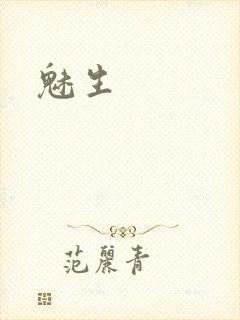 魅生
范丽青